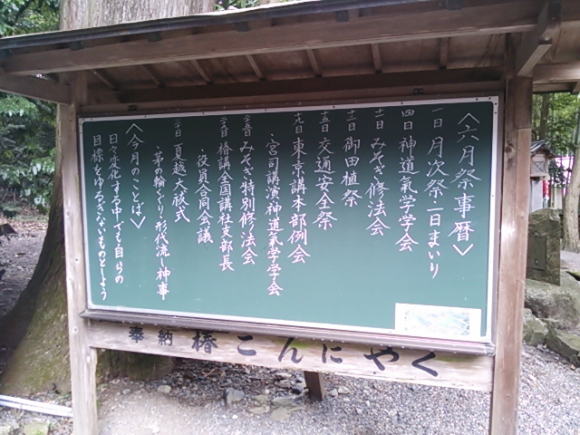 〈六月祭事暦〉
一日 月次祭・一日まいり
四日 神道氣学学会
十一日 みそぎ修法会
十二日 御田植祭
十五日 交通安全祭
十九日 東京講本部例会
・宮司講演・神道氣学学会
みそぎ特別修行法会
椿講全国講社支部長
・役員合同会議
三十日 夏越大祓式
・茅の輪くぐり・形代流し神事
〈今月のことば〉
日々変化する中でも自らの
目標をゆるぎないものとしよう
奉納 椿こんにやく